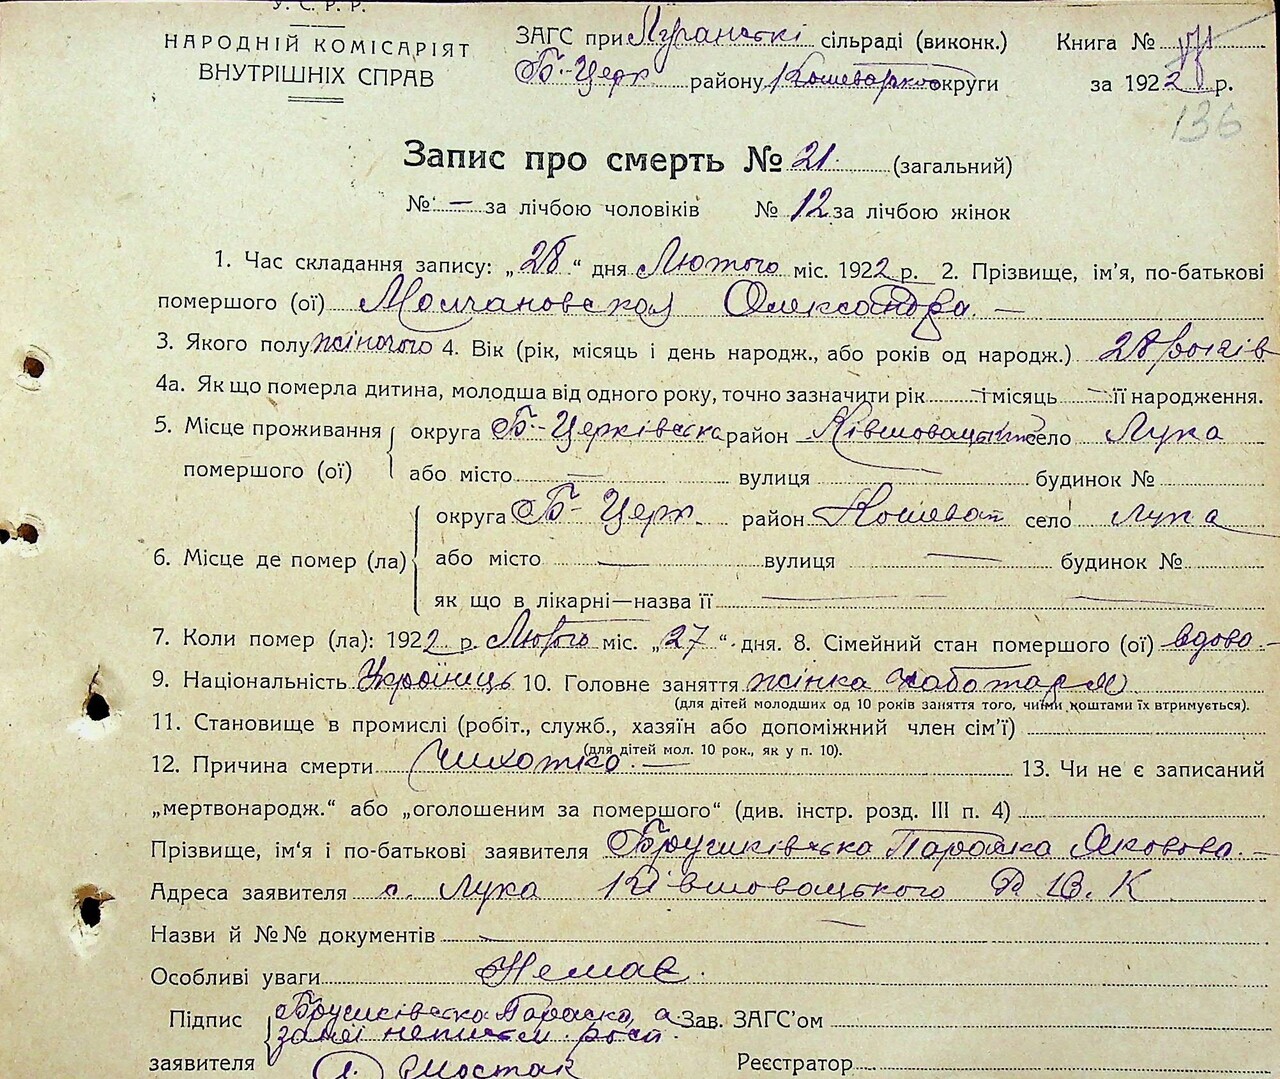 У. С. Р. Р.
НАРОДНІЙ КОМІСАРІЯТ
ВНУТРІШНІХ СПРАВ
ЗАГС при сільраді (виконк.)
Б.-Церк району округи
Книга №
за 1922 р.
136
Запис про смерть № 21. (загальний)
№ — за лічбою чоловіків № 12 за лічбою жінок
1. Час складання запису: „28“ дня Лютого міс. 1922 р. 2. Прізвище, ім'я, по-батькові
помершого (ої) Молчановская Олександра. —
3. Якого полу жіночого 4. Вік (рік, місяць і день народж., або років од народж.) 28 років
4а. Як що померла дитина, молодша від одного року, точно зазначити рік — і місяць — її народження.
5. Місце проживання помершого (ої) округа Б.-Церківська район село Лука
або місто — вулиця будинок №
6. Місце де помер (ла) округа Б-Церк. район Кошеват село Лука
або місто — вулиця — будинок №
як що в лікарні—назва її — — —
7. Коли помер (ла): 1922 р. Лютого міс. „27“ дня. 8. Сімейний стан помершого (ої) вдова —
9. Національність Українець 10. Головне заняття жінка чоботаря
(для дітей молодших од 10 років заняття того, чиїми коштами їх втримується).
11. Становище в промислі (робіт., служб., хазяїн або допоміжний член сім'ї)
(для дітей мол. 10 рок., як у п. 10).
12. Причина смерти Чихотка. — 13. Чи не є записаний
„мертвонародж.“ або „оголошеним за помершого“ (див. інстр. розд. III п. 4)
Прізвище, ім'я і по-батькові заявителя Брушківська Параска Яковова. —
Адреса заявителя с. Лука Ківшовацького Р. В. К
Назви й №№ документів —
Особливі уваги Немає.
Підпис заявителя Брушківська Параска, а
занеї неписьм. росп.
Шостак
Зав. ЗАГС'ом
Реєстратор